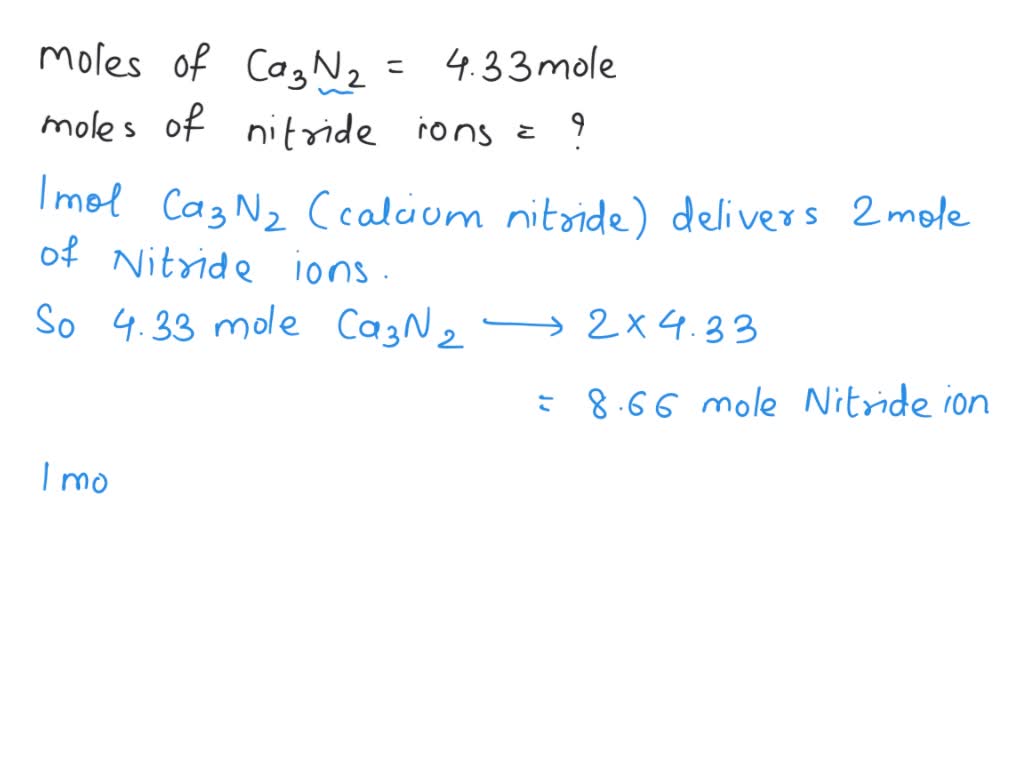 moles of Ca₃N₂ = 4.33 mole
moles of nitride ions = ?
1 mol Ca₃N₂ (calcium nitride) delivers 2 mole
of Nitride ions.
So 4.33 mole Ca₃N₂ ⟶ 2 × 4.33
= 8.66 mole Nitride ion
1 mo